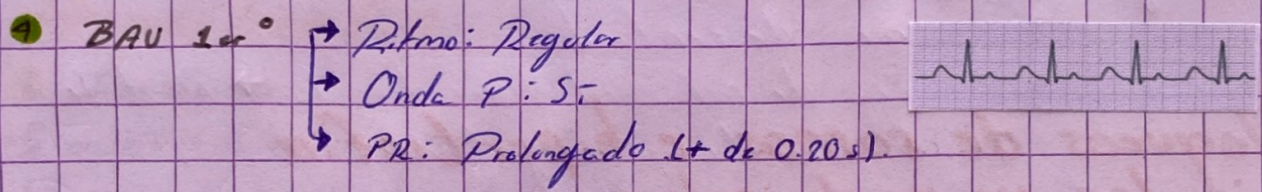 4 BAV 1er° → Ritmo: Regular
→ Onda P: Sí
→ PR: Prolongado (+ de 0.20 s).